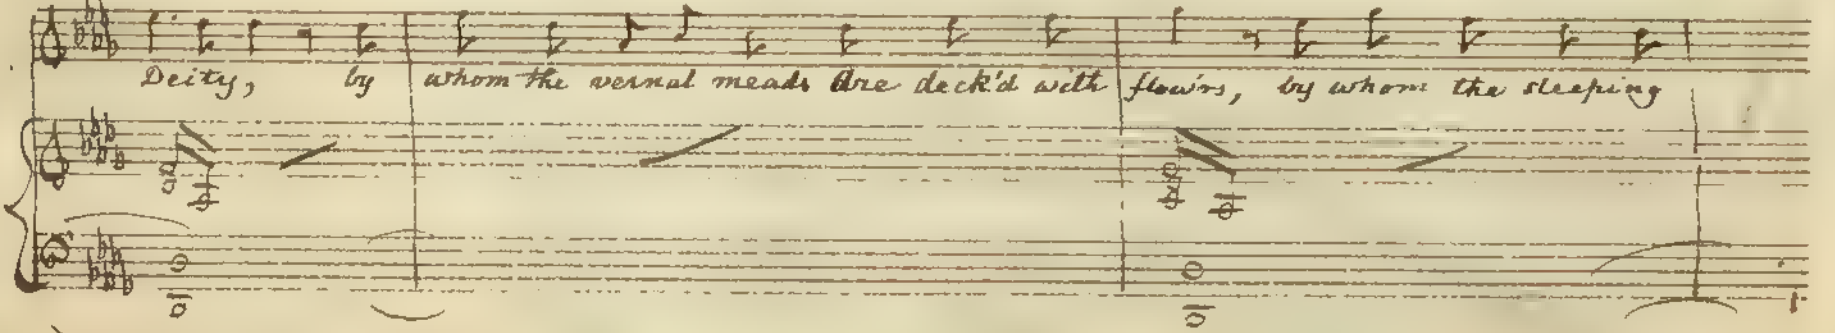 Deity, by whom the vernal meads Are deck'd with flow'rs, by whom the sleeping